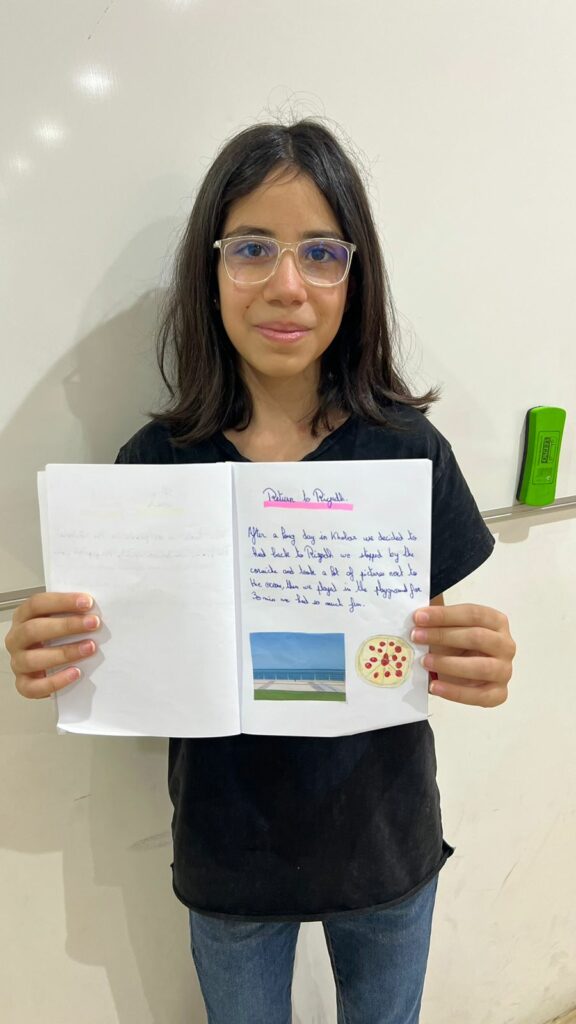 Return to Riyadh.
After a long day in Khobar we decided to
head back to Riyadh we stopped by the
corniche and took a lot of pictures next to
the ocean, then we played in the playground for
30 min we had so much fun.